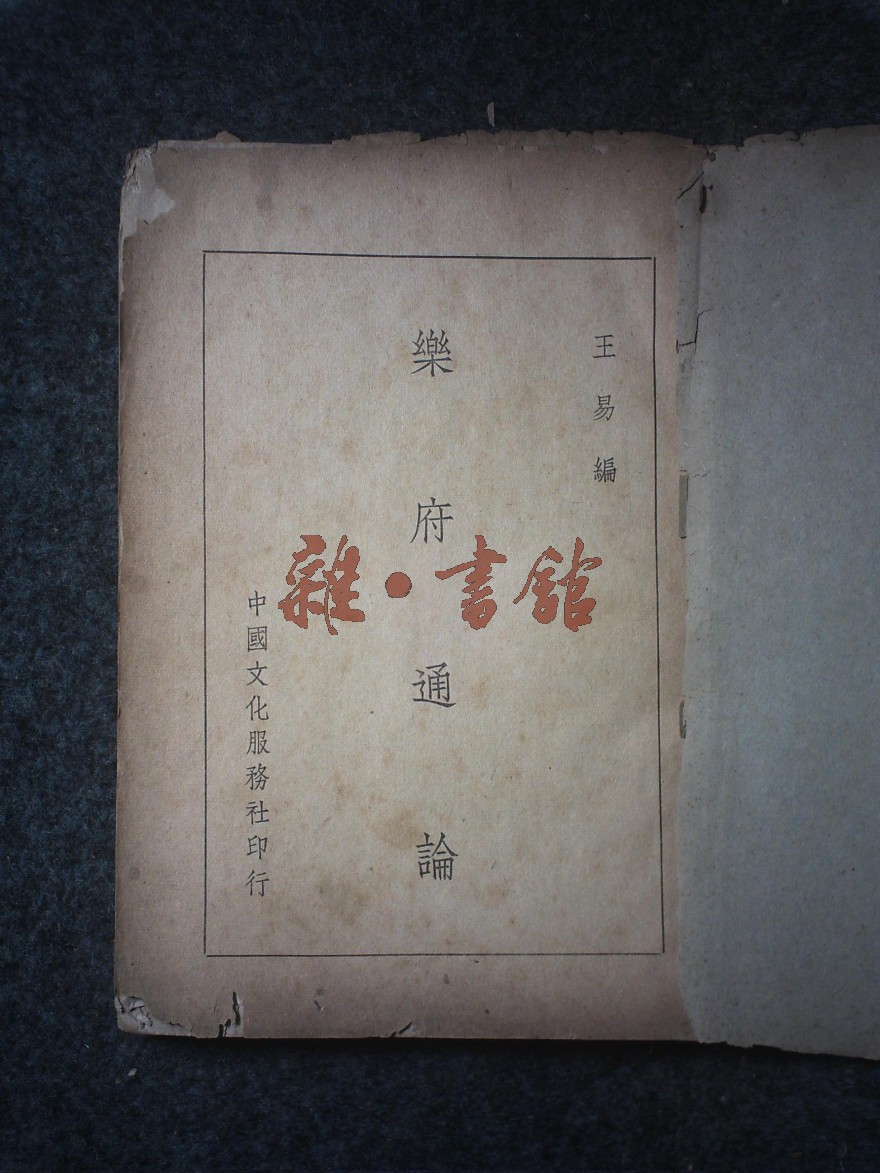 王易編
樂府通論
中國文化服務社印行
雜·書館